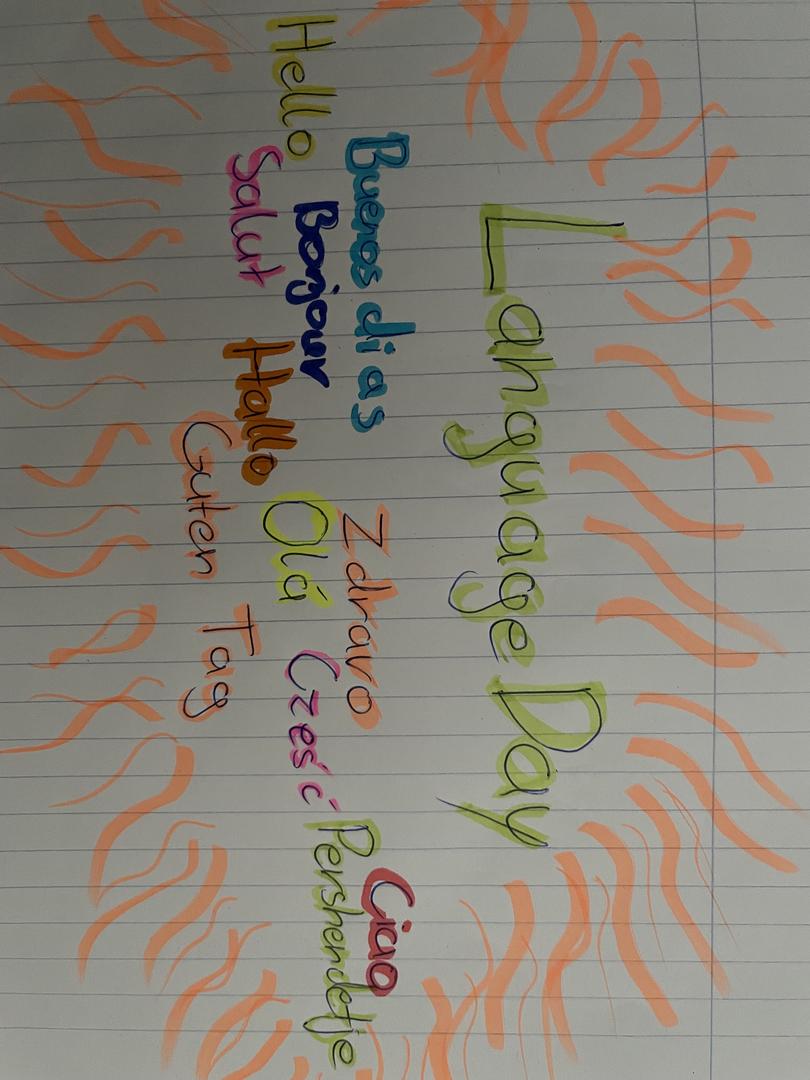 Language Day
Ciao
Buenos dias
Zdravo
Hello
Bonjour
Olá
Cześć
Pershendetje
Salut
Hallo
Guten Tag